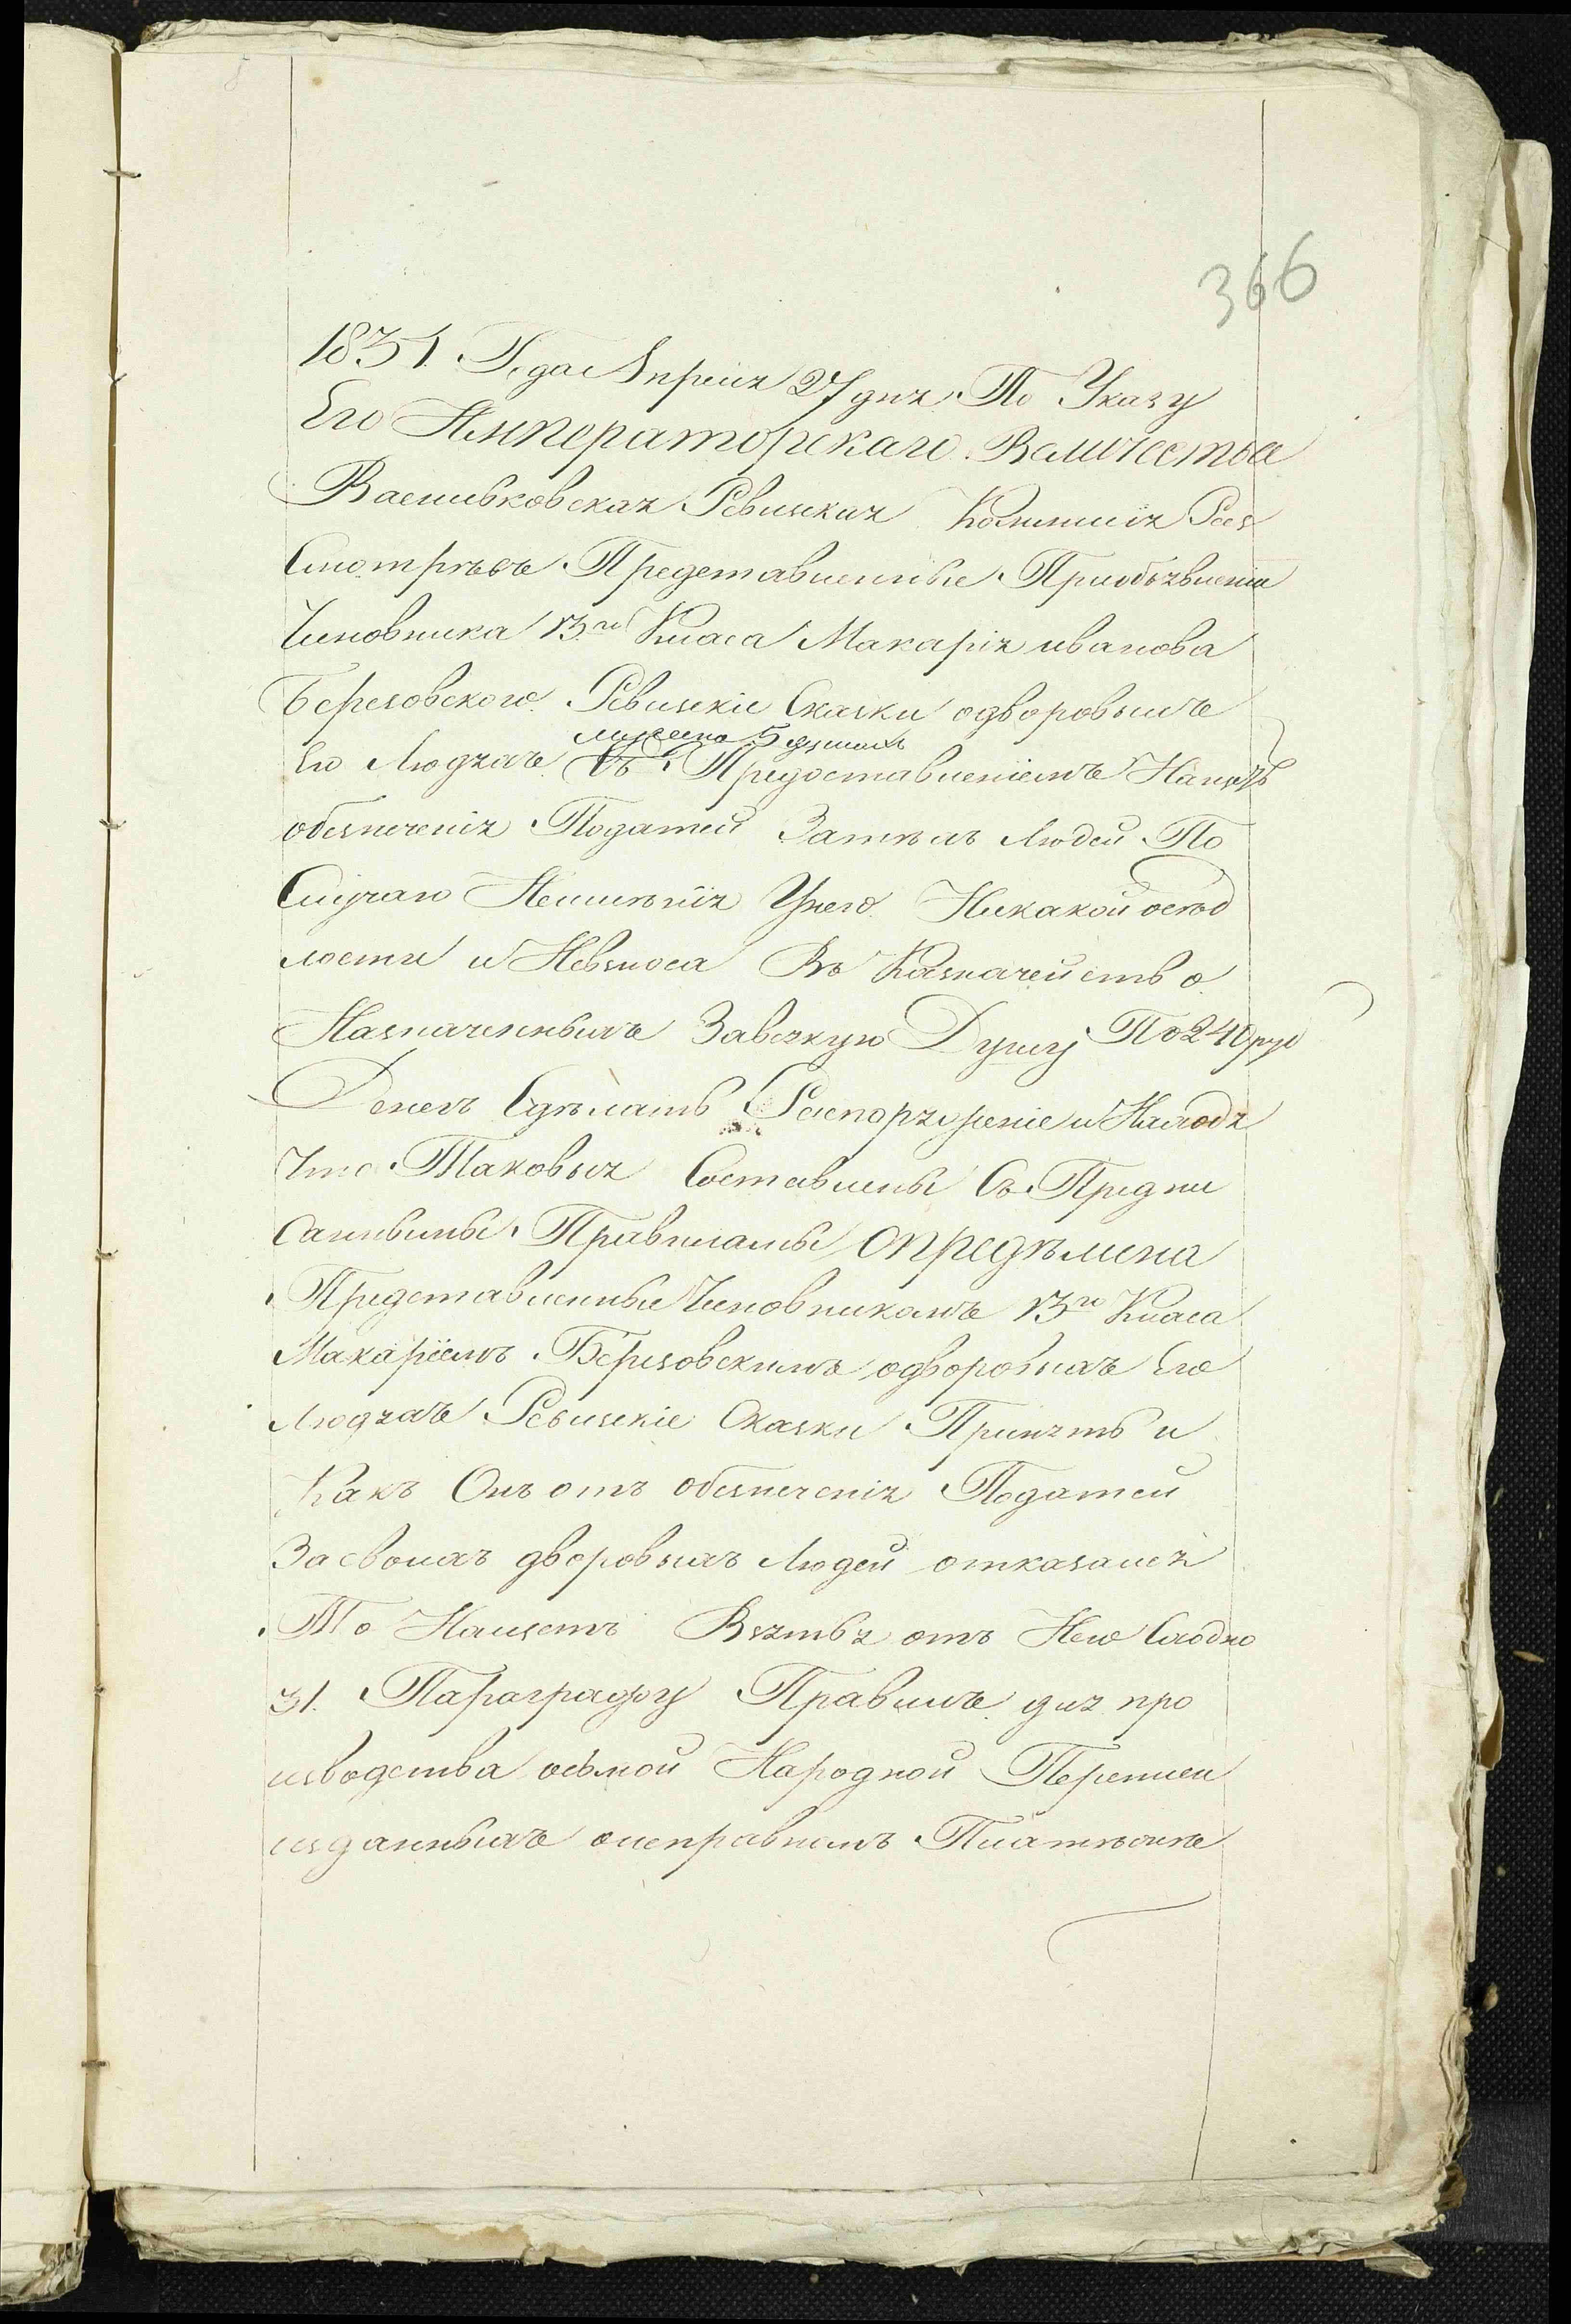 366
1834 Года Апреля 27 дня. По Указу
Его Императорскаго Величества
Васильковская Ревизская Коммисія Роз
Смотревъ Представленные Приобъявленіи
Чиновника 13го Класа Макарія иванова
Березовского Ревизскіе Сказки одворовыхъ
мужеска 5 душахъ
Его Людяхъ Съ Предоставленіемъ Насчетъ
обезпеченія Податей Затехъ Людей По
Случаю Неименія Унего Никакой осед
лости и Невзноса Въ Казначейство
Назначенныхъ Завсякую Душу По 240 руб
Денегъ Сделать Распоряженіе и Находя
Что Таковыя Составлены Съ Предпи
санными Правилами Определила
Представленные Чиновникамъ 13го Класа
Макаріемъ Березовскимъ одворовыхъ Его
Людяхъ Ревизскіе Сказки Принять и
Какъ Онъ отъ обезпеченія Податей
За своихъ дворовыхъ Людей отказался
То Насчетъ Взятья отъ Него Сходно
31. Параграфу Правилъ для про
изводства осьмой Народной Переписи
изданныхъ